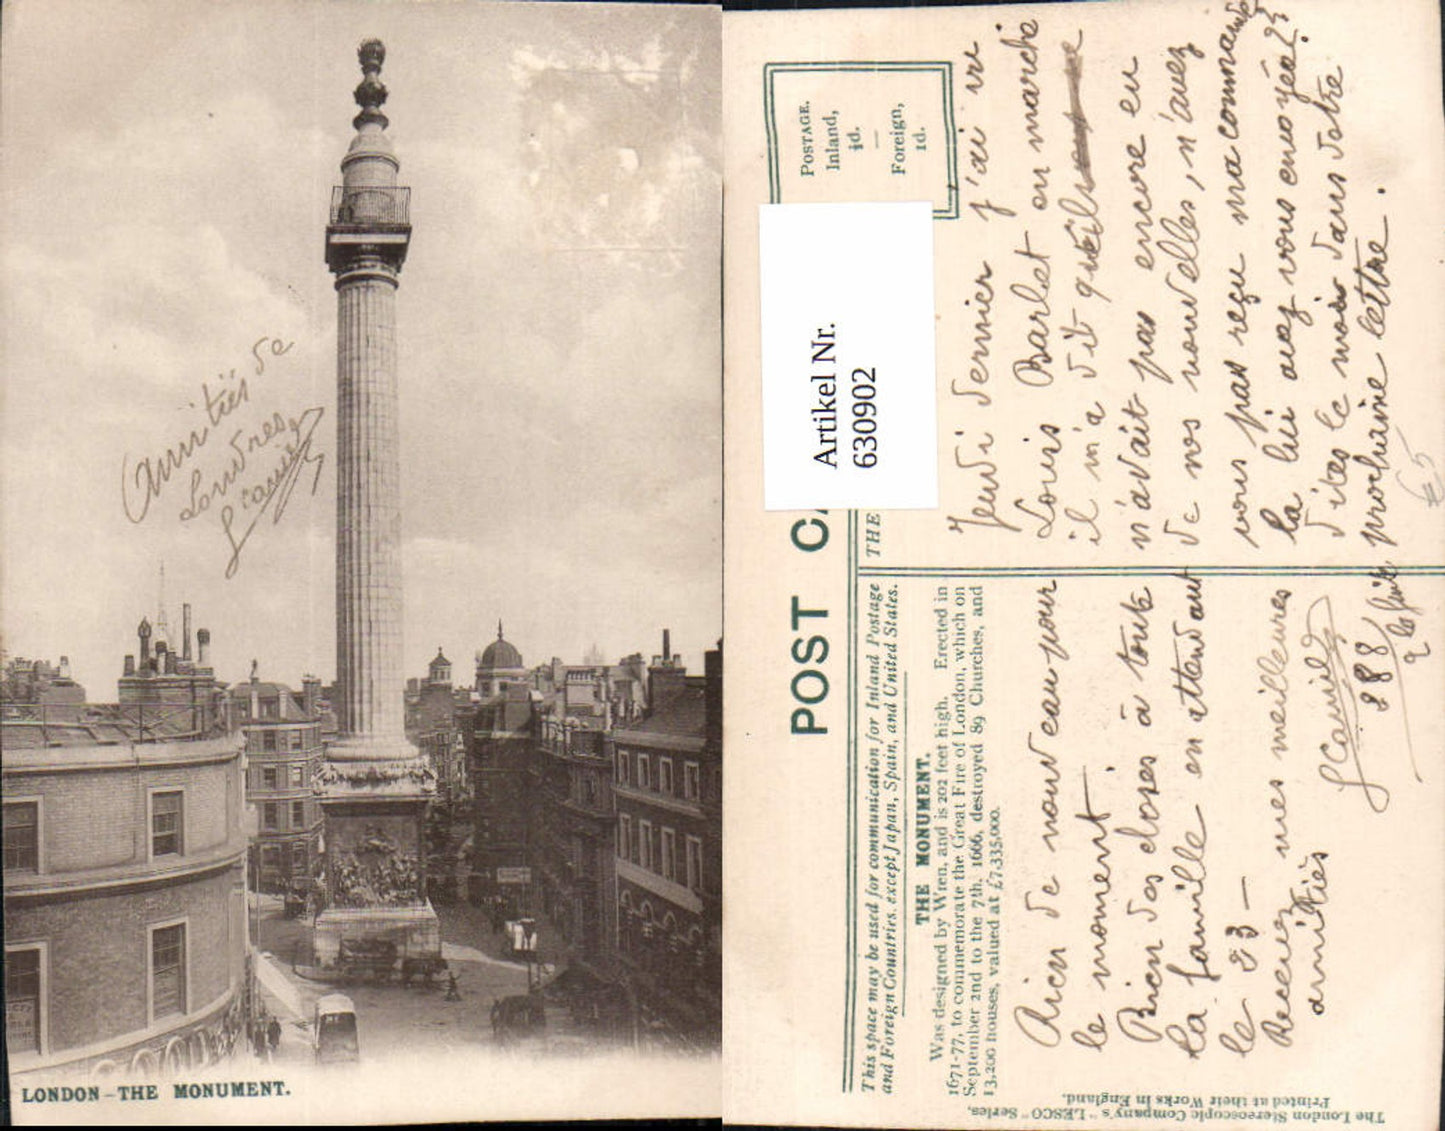 Amitiés de
Londres
LONDON-THE MONUMENT.
POSTAGE.
Inland,
½d.
—
Foreign,
1d.
Artikel Nr.
630902
POST CA
THE
This space may be used for communication for Inland Postage
and Foreign Countries, except Japan, Spain, and United States.
THE MONUMENT.
Was designed by Wren, and is 202 feet high. Erected in
1671-77, to commemorate the Great Fire of London, which on
September 2nd to the 7th, 1666, destroyed 89 Churches, and
13,200 houses, valued at £7,335,000.
Jeudi dernier j'ai vu
Louis Barlet au marché
il m'a dit qu'il
n'avait pas encore eu
de vos nouvelles, n'avez
vous pas reçu ma commande
la lui avez vous envoyée??
dites le moi dans votre
prochaine lettre.
Rien de nouveau pour
le moment.
Bien des choses à toute
la famille en attendant
le 23 —
Recevez mes meilleures
amitiés
Camille
888
€5
The London Stereoscopic Company's "LESCO" Series,
Printed at their Works in England.